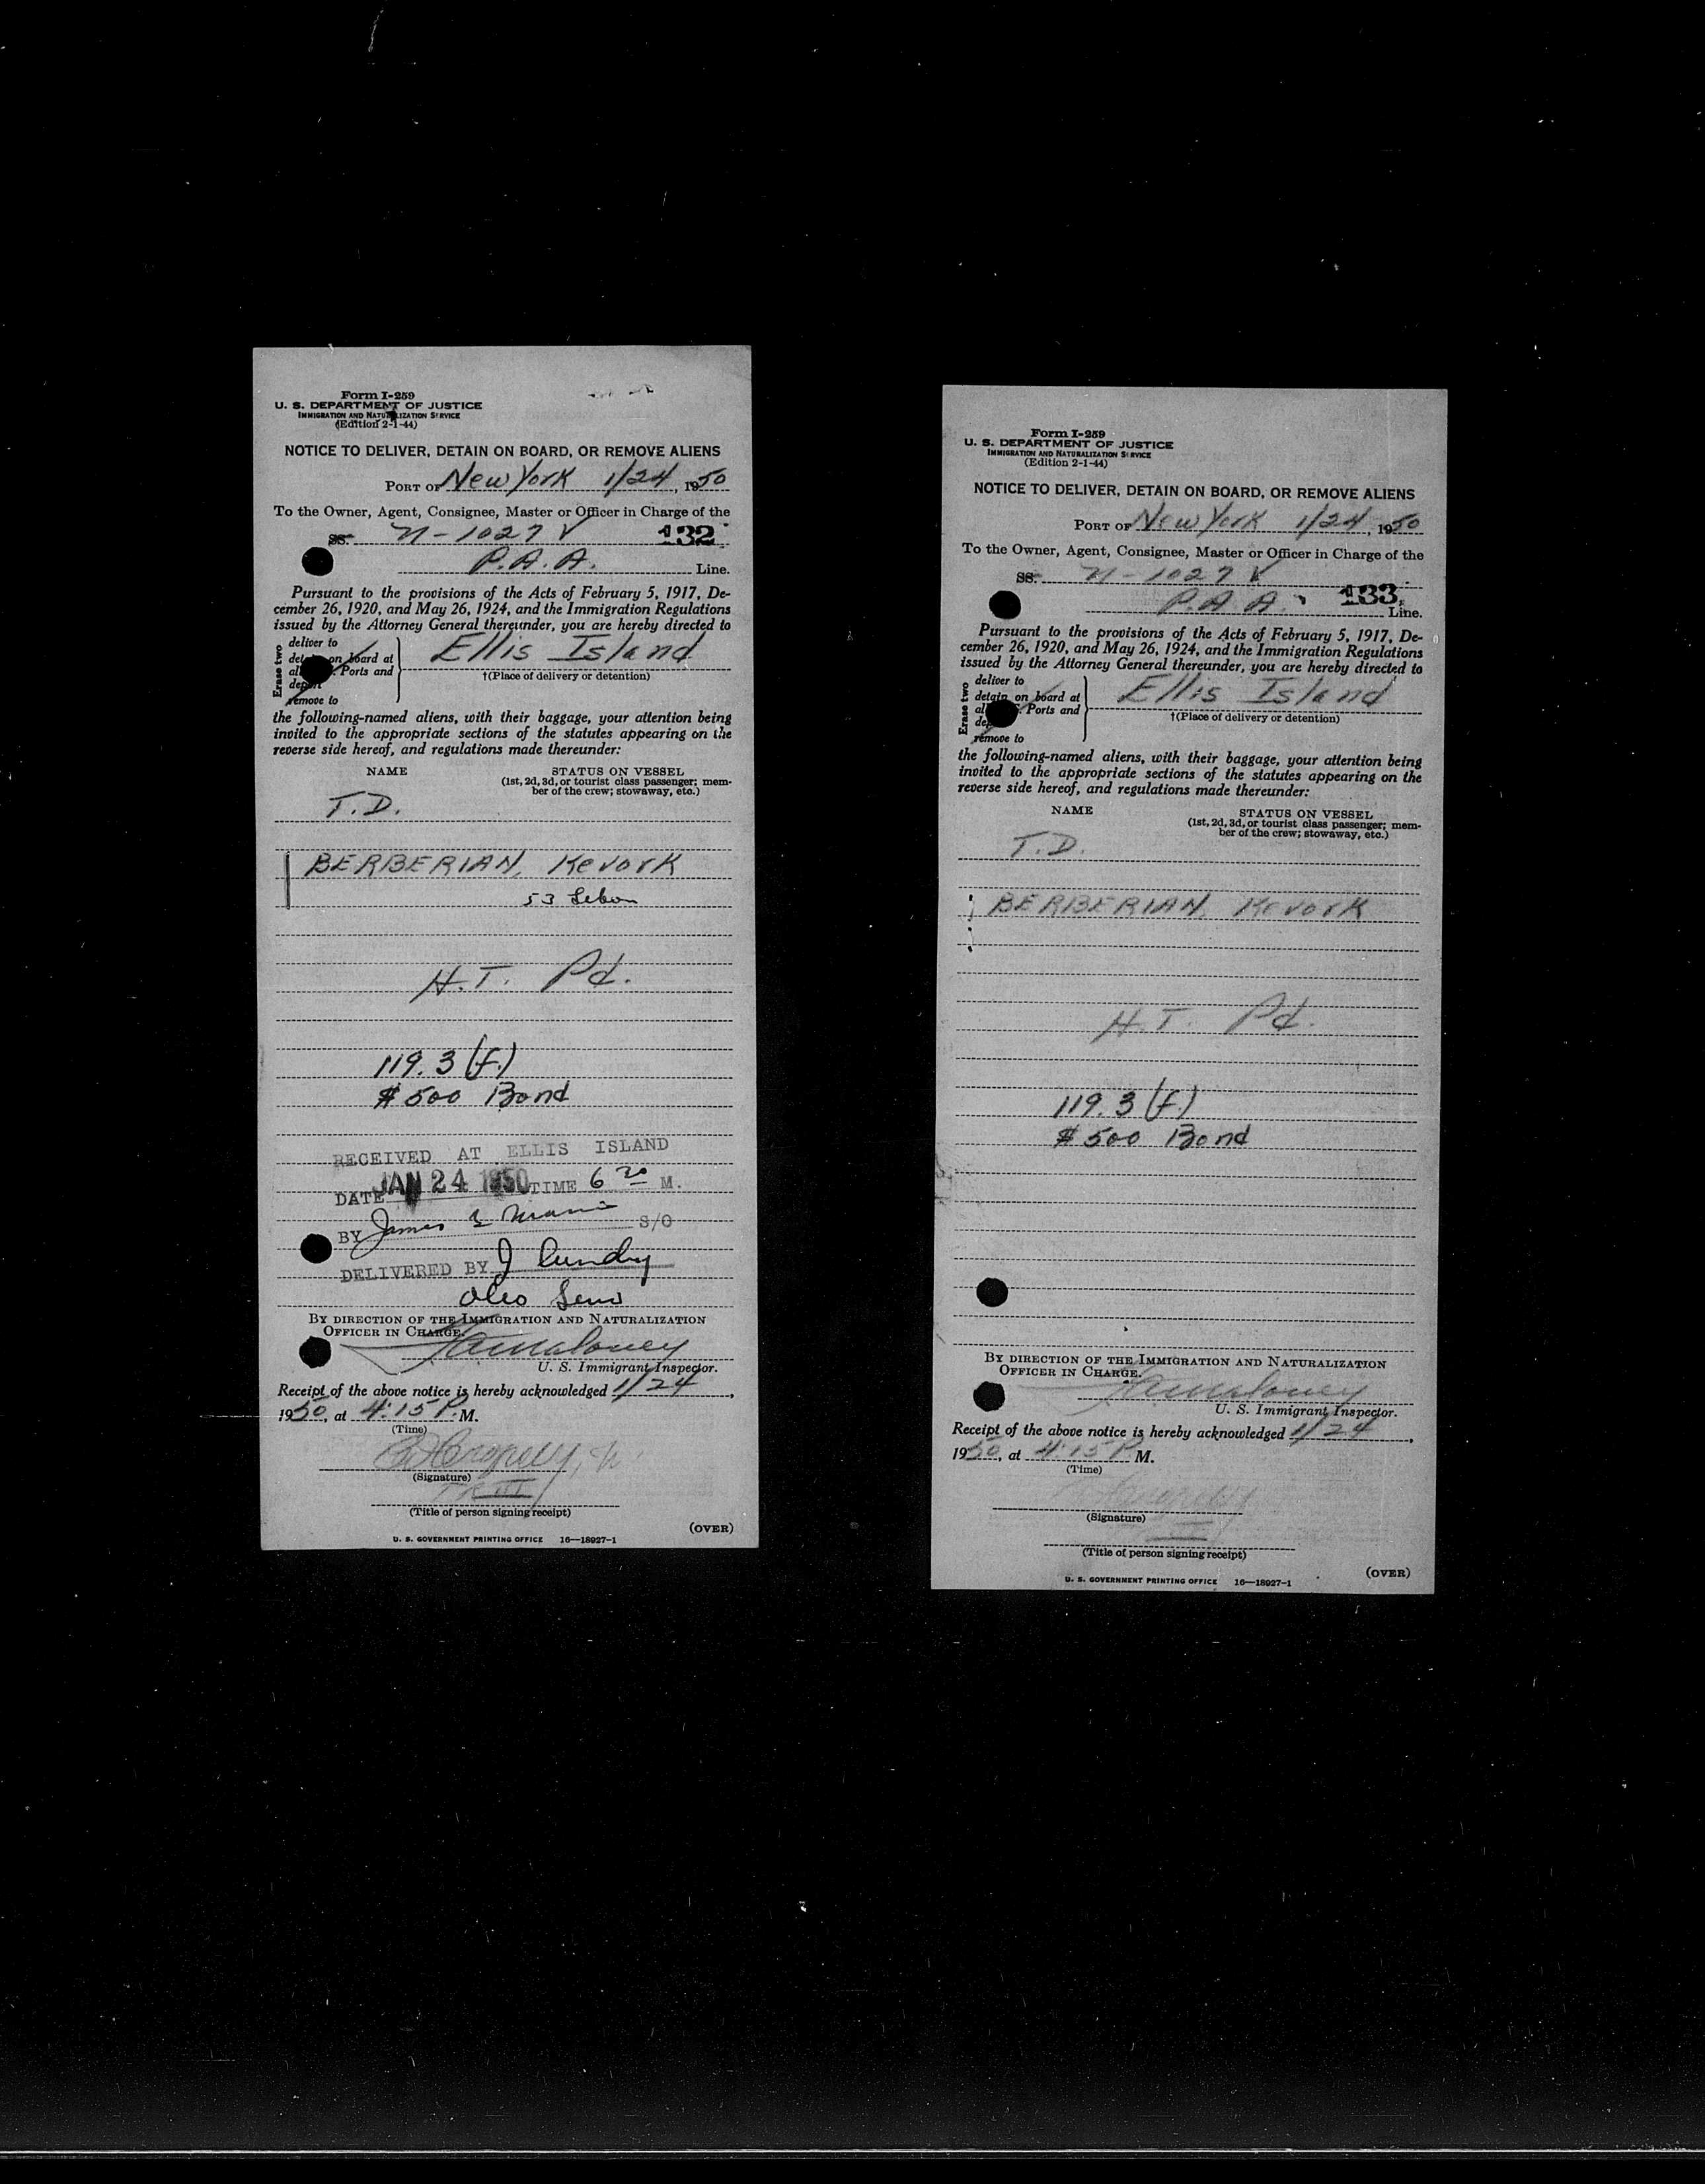 Form I-259
U. S. DEPARTMENT OF JUSTICE
IMMIGRATION AND NATURALIZATION SERVICE
(Edition 2-1-44)
NOTICE TO DELIVER, DETAIN ON BOARD, OR REMOVE ALIENS
PORT OF New York 1/24, 1950
To the Owner, Agent, Consignee, Master or Officer in Charge of the
SS. N-1027 V 132
P.A.A. Line.
Pursuant to the provisions of the Acts of February 5, 1917, De-
cember 26, 1920, and May 26, 1924, and the Immigration Regulations
issued by the Attorney General thereunder, you are hereby directed to
Erase two
deliver to
detain on board at
al Ports and
deport
remove to
Ellis Island
†(Place of delivery or detention)
the following-named aliens, with their baggage, your attention being
invited to the appropriate sections of the statutes appearing on the
reverse side hereof, and regulations made thereunder:
NAME STATUS ON VESSEL
(1st, 2d, 3d, or tourist class passenger; mem-
ber of the crew; stowaway, etc.)
T.D.
BERBERIAN, Kevork
53 Leban
H.T. Pd.
119.3 (f.)
$500 Bond
RECEIVED AT ELLIS ISLAND
DATE JAN 24 1950 TIME 6 M.
BY James S/O
DELIVERED BY J
BY DIRECTION OF THE IMMIGRATION AND NATURALIZATION
OFFICER IN CHARGE.
U. S. Immigrant Inspector.
Receipt of the above notice is hereby acknowledged 1/24,
1950, at 4:15 P. M.
(Time)
(Signature)
(Title of person signing receipt)
(OVER)
U. S. GOVERNMENT PRINTING OFFICE 16—18927-1
Form I-259
U. S. DEPARTMENT OF JUSTICE
IMMIGRATION AND NATURALIZATION SERVICE
(Edition 2-1-44)
NOTICE TO DELIVER, DETAIN ON BOARD, OR REMOVE ALIENS
PORT OF New York 1/24, 1950
To the Owner, Agent, Consignee, Master or Officer in Charge of the
SS. N-1027 V
P.A.A. 133 Line.
Pursuant to the provisions of the Acts of February 5, 1917, De-
cember 26, 1920, and May 26, 1924, and the Immigration Regulations
issued by the Attorney General thereunder, you are hereby directed to
Erase two
deliver to
detain on board at
al Ports and
de
remove to
Ellis Island
†(Place of delivery or detention)
the following-named aliens, with their baggage, your attention being
invited to the appropriate sections of the statutes appearing on the
reverse side hereof, and regulations made thereunder:
NAME STATUS ON VESSEL
(1st, 2d, 3d, or tourist class passenger; mem-
ber of the crew; stowaway, etc.)
T.D.
BERBERIAN, Kevork
H.T. Pd.
119.3 (f.)
$500 Bond
BY DIRECTION OF THE IMMIGRATION AND NATURALIZATION
OFFICER IN CHARGE.
U. S. Immigrant Inspector.
Receipt of the above notice is hereby acknowledged 1/24,
1950, at 4:15 P. M.
(Time)
(Signature)
(Title of person signing receipt)
(OVER)
U. S. GOVERNMENT PRINTING OFFICE 16—18927-1